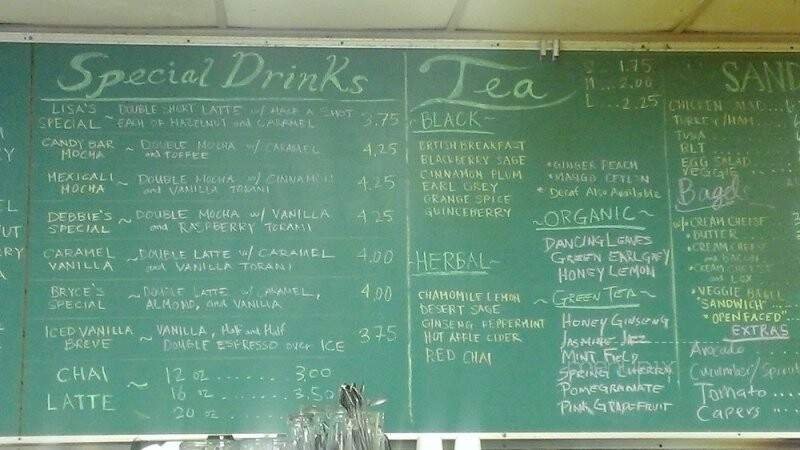 Special Drinks
LISA'S SPECIAL ~ DOUBLE SHORT LATTE w/ HALF A SHOT
EACH OF HAZELNUT and CARAMEL 3.75
CANDY BAR MOCHA ~ DOUBLE MOCHA w/ CARAMEL
and TOFFEE 4.25
MEXICALI MOCHA ~ DOUBLE MOCHA w/ CINNAMON
and VANILLA TORANI 4.25
DEBBIE'S SPECIAL ~ DOUBLE MOCHA w/ VANILLA
and RASPBERRY TORANI 4.25
CARAMEL VANILLA ~ DOUBLE LATTE w/ CARAMEL
and VANILLA TORANI 4.00
BRYCE'S SPECIAL ~ DOUBLE LATTE w/ CARAMEL,
ALMOND, and VANILLA 4.00
ICED VANILLA BREVE ~ VANILLA, Half and Half
DOUBLE ESPRESSO over ICE 3.75
CHAI LATTE ~ 12 oz ........ 3.00
16 oz ........ 3.50
20 oz
Tea
S 1.75
M 2.00
L 2.25
BLACK
BRTISH BREAKFAST
BLACKBERRY SAGE
CINNAMON PLUM
EARL GREY
ORANGE SPICE
QUINCEBERRY
* GINGER PEACH
* MANGO CEYLON
* Decaf Also Available
HERBAL
CHAMOMILE LEMON
DESERT SAGE
GINSENG PEPPERMINT
HOT APPLE CIDER
RED CHAI
~ORGANIC~
DANCING LEAVES
GREEN EARL GREY
HONEY LEMON
~GREEN TEA~
HONEY GINSENG
JASMINE JAZZ
MINT FIELD
SPRING CHERRY
POMEGRANATE
PINK GRAPEFRUIT
SAND
CHICKEN SALAD....
TURKEY/HAM..
TUNA
BLT
EGG SALAD
VEGGIE
Bagel
w/ CREAM CHEESE
* BUTTER
* CREAM CHEESE
and BACON
* CREAM CHEESE
and LOX
* VEGGIE BAGEL
"SANDWICH"
"OPEN FACED"
EXTRAS
Avocado
Cucumber/
Tomato
Capers